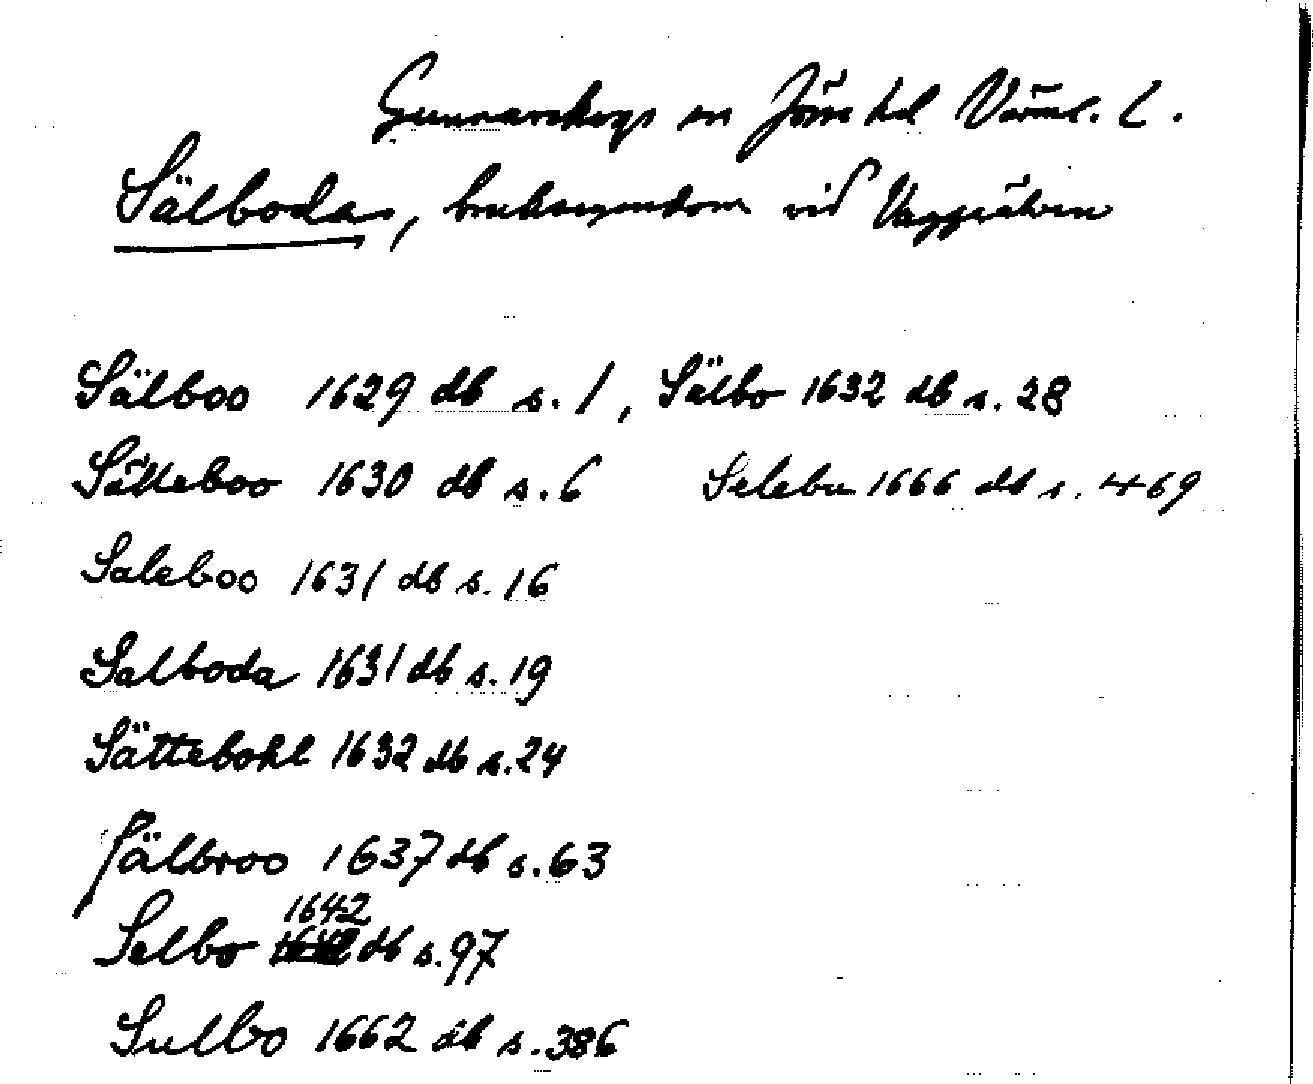 Gunnarskogs sn Jösse hd Värml. L.
Sälboda, bruksegendom vid Vaggeälven
Sälboo 1629 db s. 1, Sälbo 1632 db s. 28
Sätteboo 1630 db s. 6 Selebu 1666 db s. 469
Saleboo 1631 db s. 16
Salboda 1631 db s. 19
Sättebohl 1632 db s. 24
Sälbroo 1637 db s. 63
Selbo 1642 db s. 97
Sulbo 1662 db s. 386